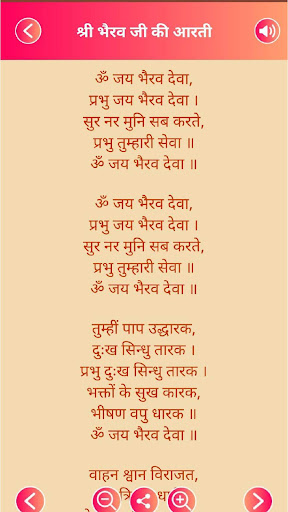 श्री भैरव जी की आरती
ॐ जय भैरव देवा,
प्रभु जय भैरव देवा ।
सुर नर मुनि सब करते,
प्रभु तुम्हारी सेवा ॥
ॐ जय भैरव देवा ॥
ॐ जय भैरव देवा,
प्रभु जय भैरव देवा ।
सुर नर मुनि सब करते,
प्रभु तुम्हारी सेवा ॥
ॐ जय भैरव देवा ॥
तुम्हीं पाप उद्धारक,
दुःख सिन्धु तारक ।
प्रभु दुःख सिन्धु तारक ।
भक्तों के सुख कारक,
भीषण वपु धारक ॥
ॐ जय भैरव देवा ॥
वाहन श्वान विराजत,